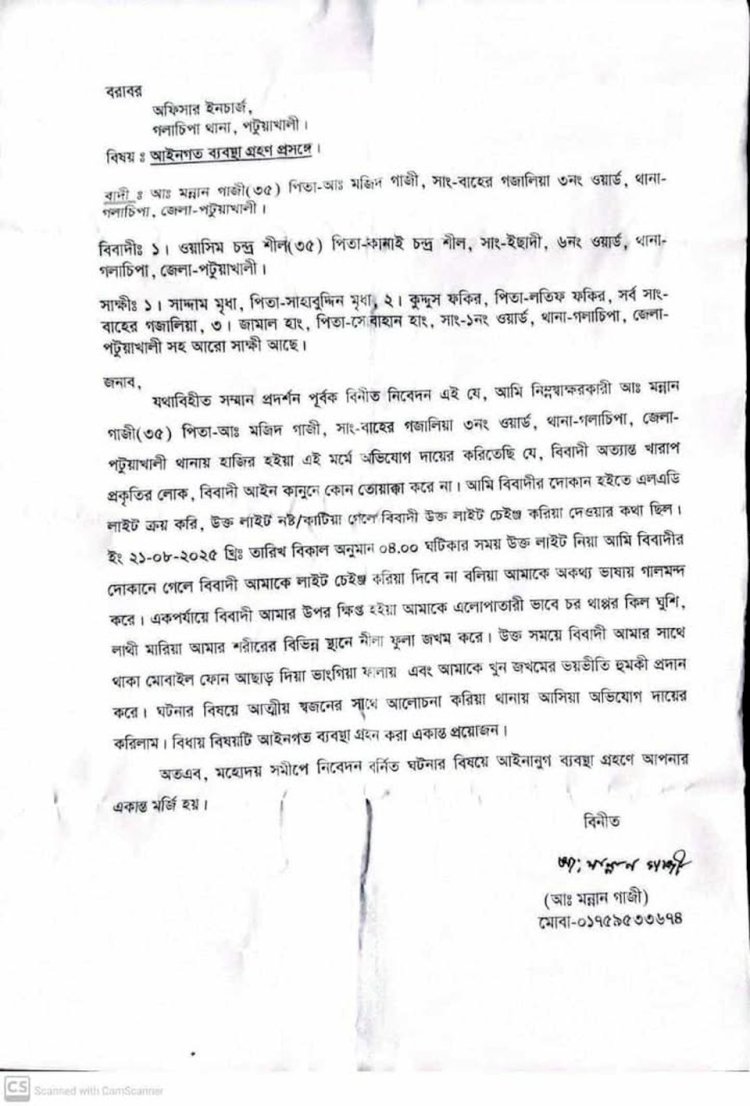 বরাবর
অফিসার ইনচার্জ,
গলাচিপা থানা, পটুয়াখালী।
বিষয় ঃ আইনগত ব্যবস্থা গ্রহণ প্রসঙ্গে।
বাদী ঃ আঃ মন্নান গাজী(৩৫) পিতা-আঃ মজিদ গাজী, সাং-বাহের গজালিয়া ৩নং ওয়ার্ড, থানা-
গলাচিপা, জেলা-পটুয়াখালী।
বিবাদীঃ ১। ওয়াসিম চন্দ্র শীল(৩৫) পিতা-কানাই চন্দ্র শীল, সাং-ইছাদী, ৬নং ওয়ার্ড, থানা-
গলাচিপা, জেলা-পটুয়াখালী।
সাক্ষীঃ ১। সাদ্দাম মৃধা, পিতা-সাহাবুদ্দিন মৃধা, ২। কুদ্দুস ফকির, পিতা-লতিফ ফকির, সর্ব সাং-
বাহের গজালিয়া, ৩। জামাল হাং, পিতা-সোবাহান হাং, সাং-১নং ওয়ার্ড, থানা-গলাচিপা, জেলা-
পটুয়াখালী সহ আরো সাক্ষী আছে।
জনাব,
যথাবিহীত সম্মান প্রদর্শন পূর্বক বিনীত নিবেদন এই যে, আমি নিম্নস্বাক্ষরকারী আঃ মন্নান
গাজী(৩৫) পিতা-আঃ মজিদ গাজী, সাং-বাহের গজালিয়া ৩নং ওয়ার্ড, থানা-গলাচিপা, জেলা-
পটুয়াখালী থানায় হাজির হইয়া এই মর্মে অভিযোগ দায়ের করিতেছি যে, বিবাদী অত্যান্ত খারাপ
প্রকৃতির লোক, বিবাদী আইন কানুনে কোন তোয়াক্কা করে না। আমি বিবাদীর দোকান হইতে এলএডি
লাইট ক্রয় করি, উক্ত লাইট নষ্ট/কাটিয়া গেলে বিবাদী উক্ত লাইট চেইঞ্জ করিয়া দেওয়ার কথা ছিল।
ইং ২১-০৮-২০২৫ খ্রিঃ তারিখ বিকাল অনুমান ০৪.০০ ঘটিকার সময় উক্ত লাইট নিয়া আমি বিবাদীর
দোকানে গেলে বিবাদী আমাকে লাইট চেইঞ্জ করিয়া দিবে না বলিয়া আমাকে অকথ্য ভাষায় গালমন্দ
করে। একপর্যায়ে বিবাদী আমার উপর ক্ষিপ্ত হইয়া আমাকে এলোপাতারী ভাবে চর থাপ্পর কিল ঘুশি,
লাথী মারিয়া আমার শরীরের বিভিন্ন স্থানে নীলা ফুলা জখম করে। উক্ত সময়ে বিবাদী আমার সাথে
থাকা মোবাইল ফোন আছাড় দিয়া ভাংগিয়া ফালায় এবং আমাকে খুন জখমের ভয়ভীতি হুমকী প্রদান
করে। ঘটনার বিষয়ে আত্মীয় স্বজনের সাথে আলোচনা করিয়া থানায় আসিয়া অভিযোগ দায়ের
করিলাম। বিধায় বিষয়টি আইনগত ব্যবস্থা গ্রহন করা একান্ত প্রয়োজন।
অতএব, মহোদয় সমীপে নিবেদন বর্নিত ঘটনার বিষয়ে আইনানুগ ব্যবস্থা গ্রহণে আপনার
একান্ত মর্জি হয়।
বিনীত
আঃ মন্নান গাজী
(আঃ মন্নান গাজী)
মোবা-০১৭৫৯৫৩৩৬৭৪
CS Scanned with CamScanner